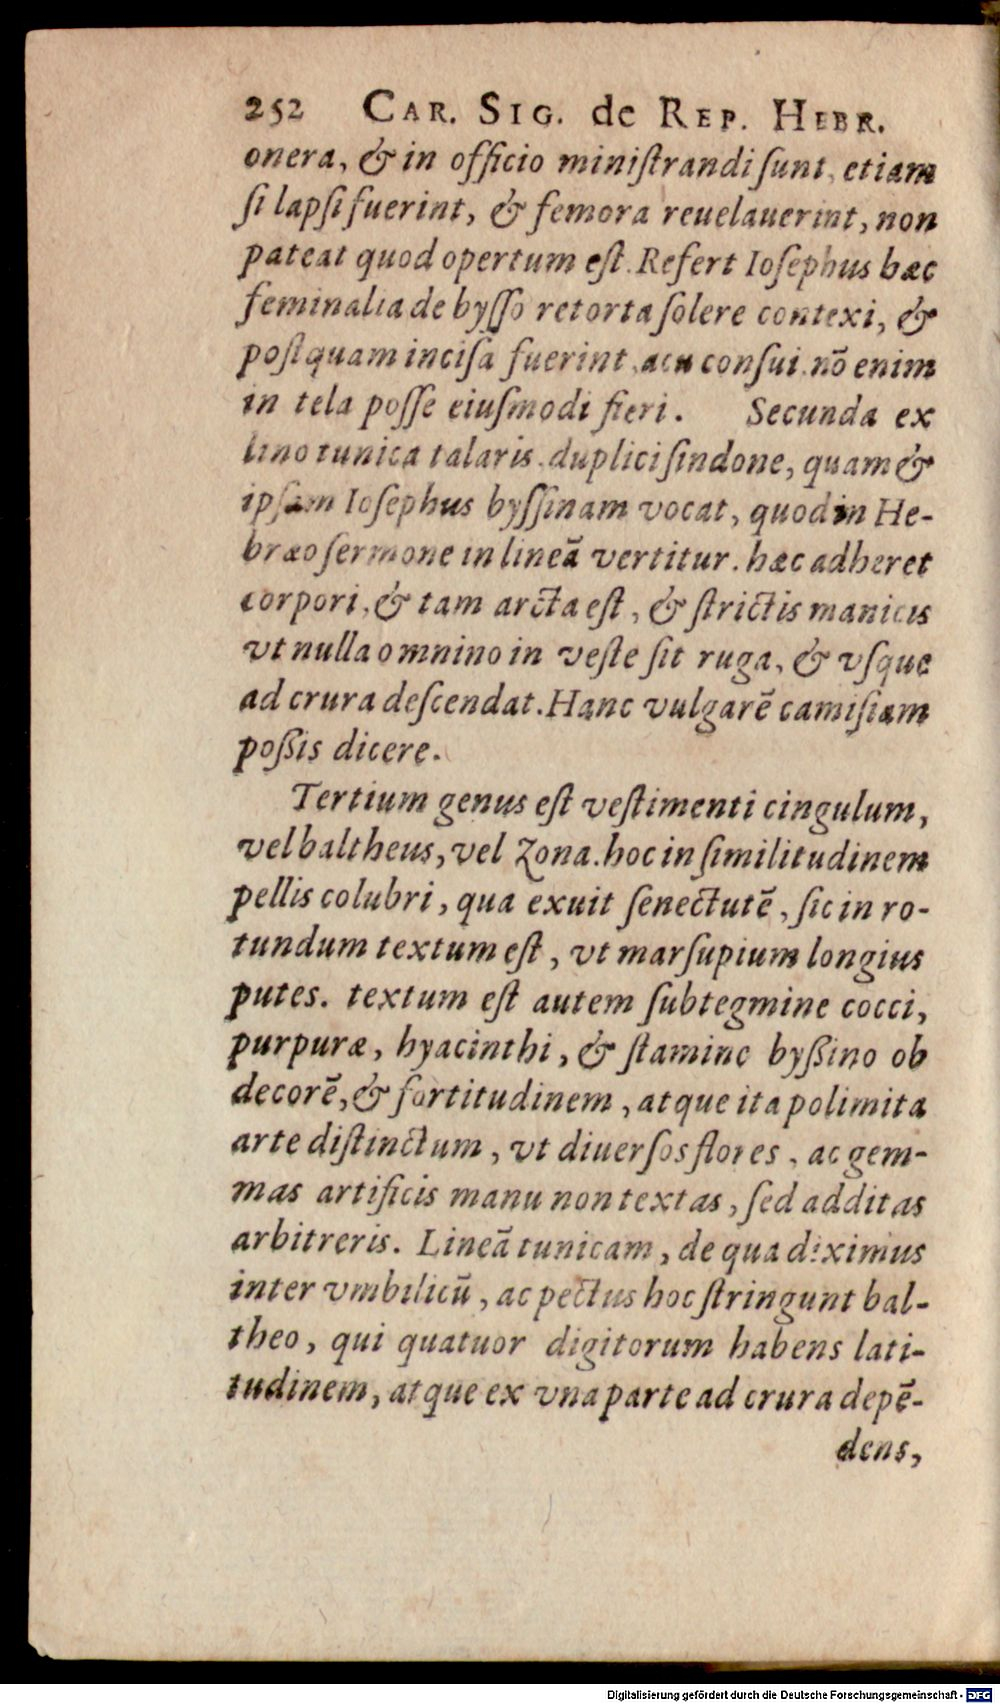 252 CAR. SIG. de REP. HEBR.
onera, & in officio miniſtrandi ſunt, etiam
ſi lapſi fuerint, & femora reuelauerint, non
pateat quod opertum eſt. Refert Ioſephus hæc
feminalia de byſſo retorta ſolere contexi, &
poſtquam inciſa fuerint, acu conſui. nō enim
in tela poſſe eiuſmodi fieri. Secunda ex
lino tunica talaris, duplici ſindone, quam &
ipſam Ioſephus byſſinam vocat, quod in He-
bræo ſermone in lineā vertitur. hæc adheret
corpori, & tam arcta eſt, & ſtrictis manicis
vt nulla omnino in veſte ſit ruga, & vſque
ad crura deſcendat. Hanc vulgarē camiſiam
poßis dicere.
Tertium genus eſt veſtimenti cingulum,
vel baltheus, vel Zona. hoc in ſimilitudinem
pellis colubri, qua exuit ſenectutē, ſic in ro-
tundum textum eſt, vt marſupium longius
putes. textum eſt autem ſubtegmine cocci,
purpuræ, hyacinthi, & ſtamine byßino ob
decorē, & fortitudinem, atque ita polimita
arte diſtinctum, vt diuerſos flores, ac gem-
mas artificis manu non textas, ſed additas
arbitreris. Lineā tunicam, de qua diximus
inter vmbilicū, ac pectus hoc ſtringunt bal-
theo, qui quatuor digitorum habens lati-
tudinem, atque ex vna parte ad crura depē-
dens,
Digitalisierung gefördert durch die Deutsche Forschungsgemeinschaft - DFG